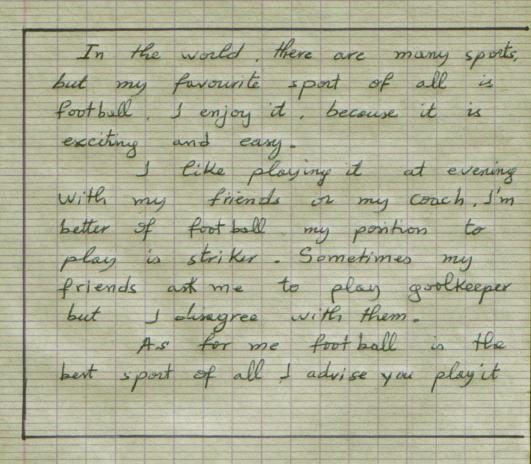 In the world, there are many sports,
but my favourite sport of all is
football. I enjoy it, because it is
exciting and easy.
I like playing it at evening
with my friends or my coach. I'm
better of football my position to
play is striker. Sometimes my
friends ask me to play goolkeeper
but I disegree with them.
As for me football is the
best sport of all I advise you play it